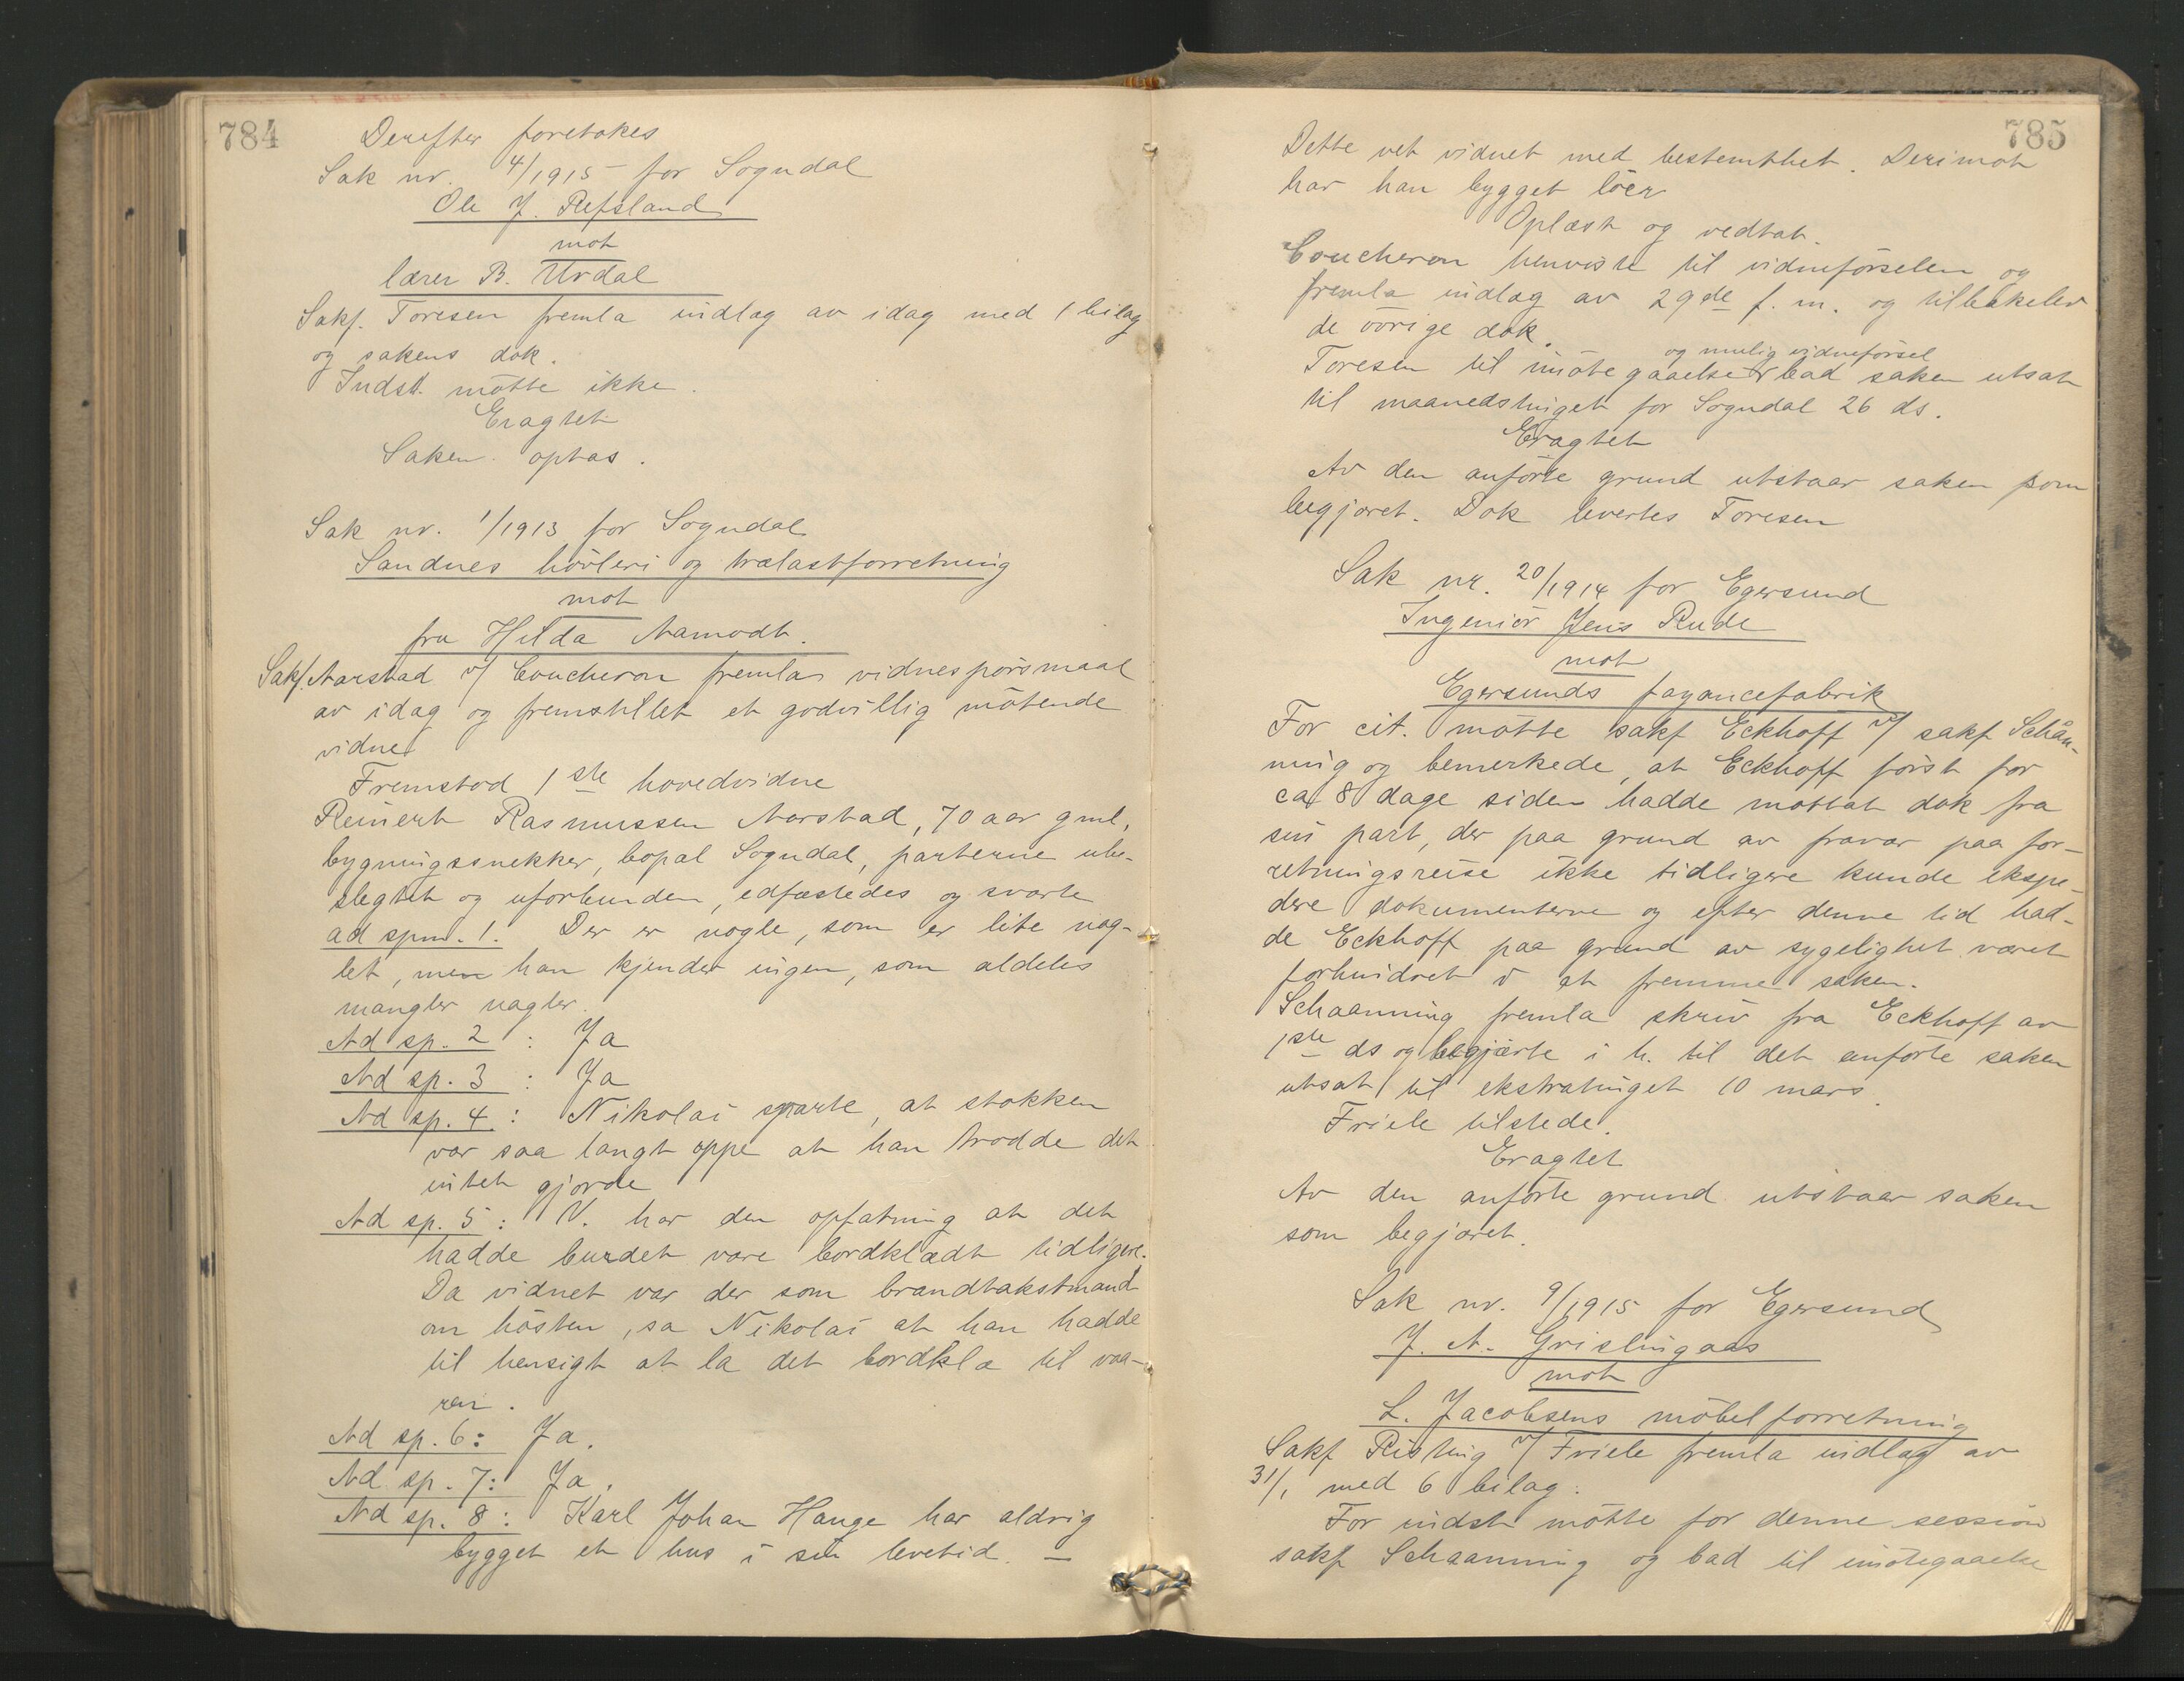 784
Derefter foretokes
Sak nr. 4/1915 for Sogndal
Ole J. Refsland
mot
lærer B. Urdal
Sakf. Toresen fremla indlæg av idag med 1 bilag
og sakens dok.
Indst. mötte ikke.
Eragtet
Saken optas.
Sak nr. 1/1913 for Sogndal
Sandnes hövleri og trælastforretning
mot
fru Hilda Aamodt.
Sakf. Aarstad v/ Coucheron fremla vidnespörsmaal
av idag og fremstillet et godvillig mötende
vidne
Fremstod 1ste hovedvidne
Reinert Rasmussen Aarstad, 70 aar gml,
bygningssnekker, bopæl Sogndal, parterne ube-
slegtet og uforbunden, edfæstedes og svarte
ad spm. 1. Der er nogle, som er lite nag-
let, men han kjender ingen, som aldeles
mangler nagler.
Ad sp. 2 : Ja
Ad sp. 3 : Ja
Ad sp. 4. : Nikolai svarte, at stokken
var saa langt oppe at han trodde det
intet gjorde
Ad sp. 5 : V. har den opfatning at det
hadde burdet være bordklædt tidligere.
Da vidnet var der som brandtakstmand
om hösten, sa Nikolai at han hadde
til hensigt at la det bordklæ til vaa-
ren.
Ad sp. 6: Ja.
Ad sp. 7: Ja.
Ad sp. 8: Karl Johan Hauge har aldrig
bygget et hus i sin levetid. —
785
Dette vet vidnet med bestemthet. Derimot
har han bygget löer
Oplæst og vedtat.
Coucheron henviste til vidneförselen og
fremla indlæg av 29de f. m. og tilbakelev
de övrige dok.
og mulig vidneförsel
Toresen til imötegaaelse bad saken utsat
til maanedstinget for Sogndal 26 ds.
Eragtet
Av den anförte grund utstaar saken som
begjæret. Dok levertes Toresen
Sak nr. 20/1914 for Egersund
Ingeniör Jens Rude
mot
Egersunds fayancefabrik
For cit. mötte sakf Eckhoff v/ sakf Schån-
ning og bemerkede, at Eckhoff först for
ca 8 dage siden hadde mottat dok fra
sin part, der paa grund av fravær paa for-
retningsreise ikke tidligere kunde ekspe-
dere dokumenterne og efter denne tid had-
de Eckhoff paa grund av sygelighet været
forhindret v at fremme saken.
Schaanning fremla skriv fra Eckhoff av
1ste ds og begjærte i h. til det anförte saken
utsat til ekstratinget 10 mars.
Friele tilstede.
Eragtet
Av den anförte grund utstaar saken
som begjæret.
Sak nr. 9/1915 for Egersund
J. A. Grislingaas
mot
L. Jacobsens möbelforretning
Sakf Risting v/ Friele fremla indlæg av
31/1 med 6 bilag.
For indst mötte for denne session
sakf Schaanning og bad til imötegaaelse